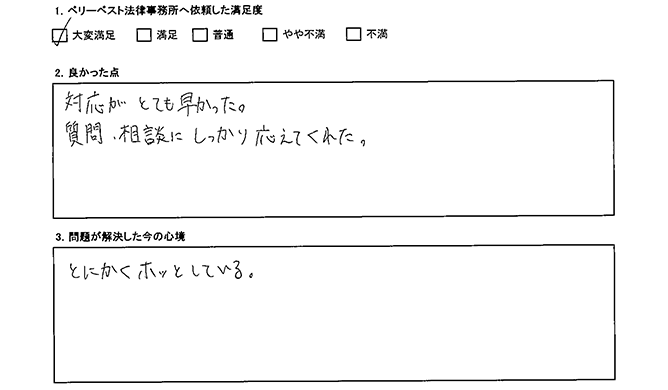 1. ベリーベスト法律事務所へ依頼した満足度
大変満足 満足 普通 やや不満 不満
2. 良かった点
対応がとても早かった。
質問・相談にしっかり応えてくれた。
3. 問題が解決した今の心境
とにかくホッとしている。